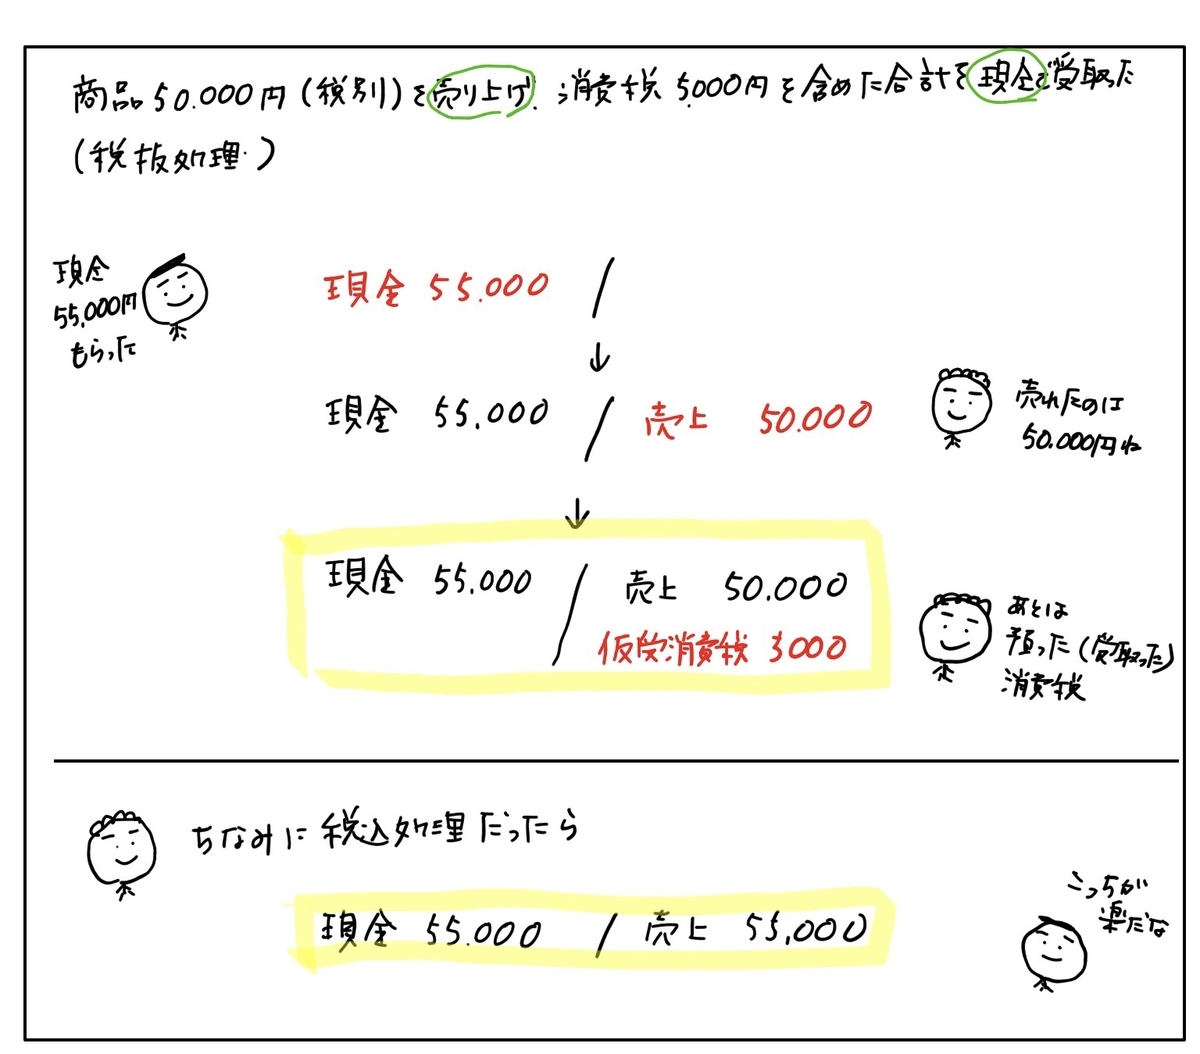 商品50.000円(税別)を売り上げ、消費税5.000円を含めた合計を現金で受取った
(税抜処理)
現金
55,000円
もらった
現金 55.000 /
↓
現金 55.000 / 売上 50.000
売れたのは
50.000円ね
↓
現金 55.000 / 売上 50.000
仮受消費税 5000
あとは
預った(受取った)
消費税
ちなみに税込処理だったら
現金 55.000 / 売上 55,000
こっちが
楽だな